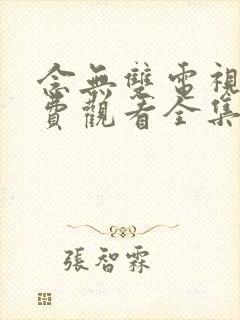 念無雙電視
費觀看全集
張智霖